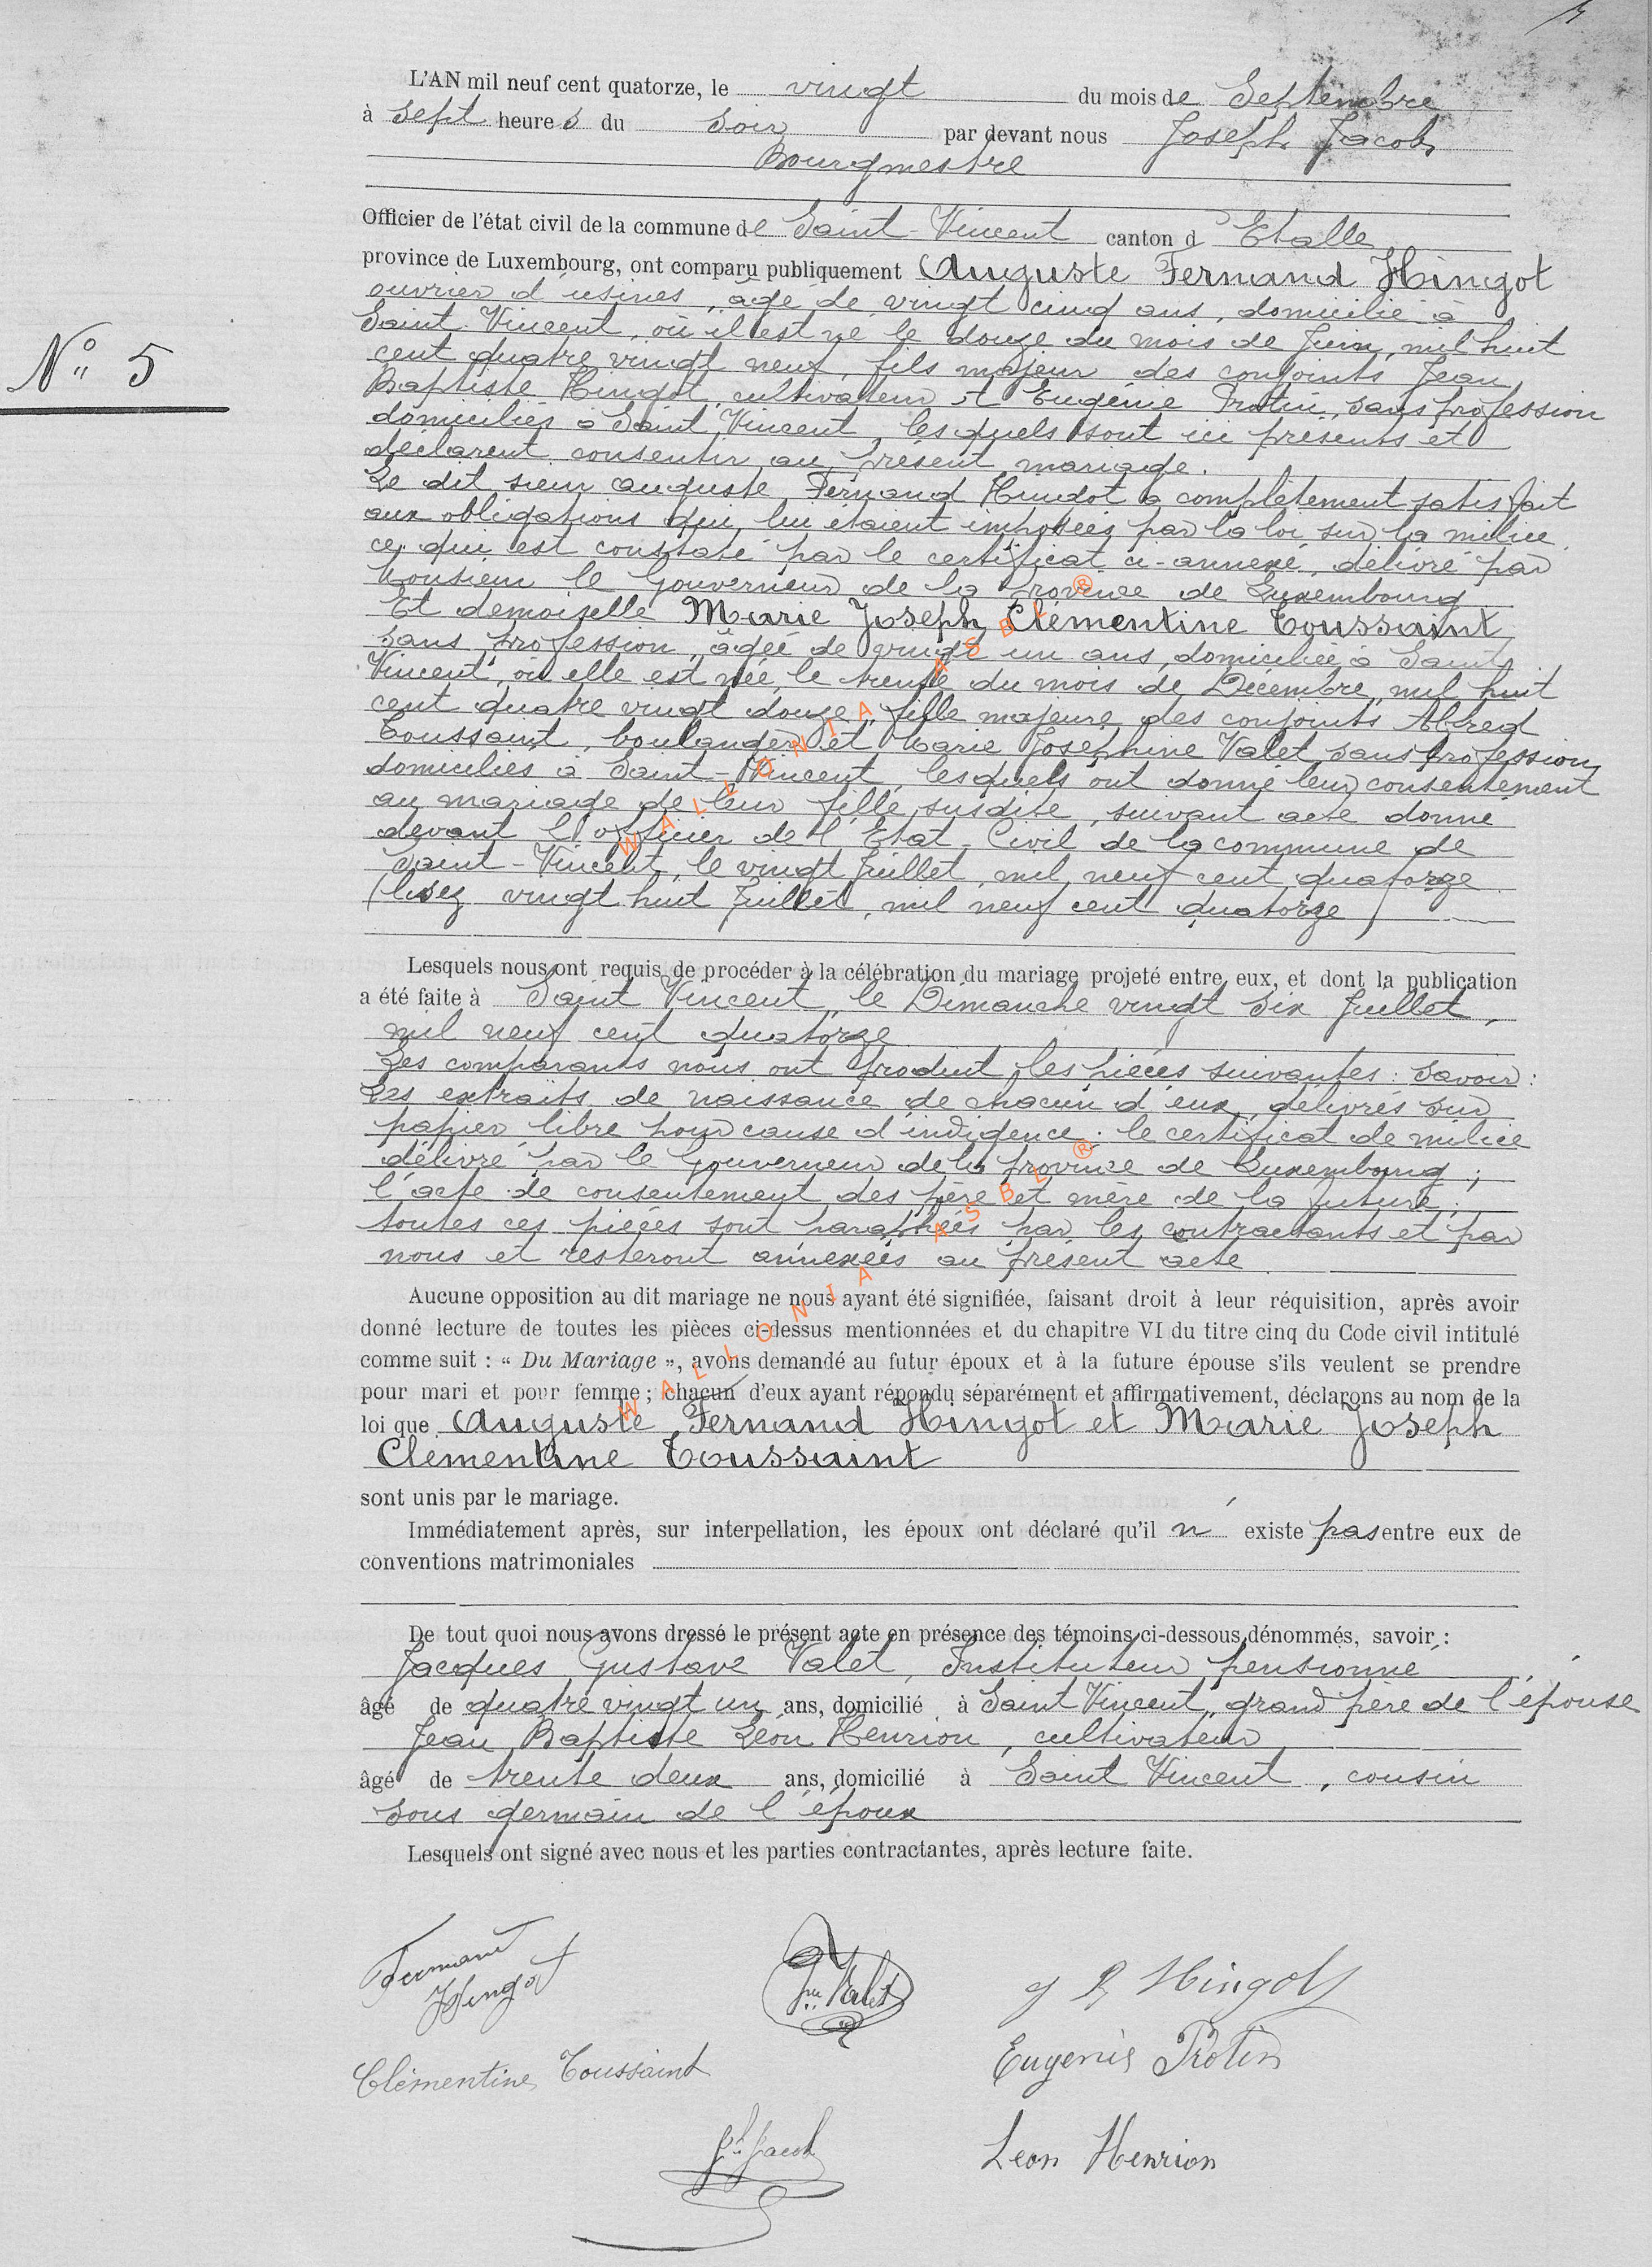 L'AN mil neuf cent quatorze, le vingt du mois de Septembre
à sept heures du soir par devant nous Joseph Jacob
Bourgmestre
Officier de l'état civil de la commune de Saint-Vincent canton d'Etalle
province de Luxembourg, ont comparu publiquement Auguste Fernand Hingot
ouvrier d'usines, âgé de vingt cinq ans, domicilié à
Saint Vincent, où il est né le douze du mois de Juin, mil huit
cent quatre vingt neuf, fils majeur des conjoints Jean
N° 5
Baptiste Hingot, cultivateur et Eugénie Protin, sans profession
domiciliés à Saint Vincent, lesquels sont ici présents et
déclarent consentir au présent mariage.
Le dit sieur Auguste Fernand Hingot a complètement satisfait
aux obligations qui lui étaient imposées par la loi sur la milice
ce qui est constaté par le certificat ci-annexé, délivré par
Monsieur le Gouverneur de la Province de Luxembourg
Et demoiselle Marie Joseph Clémentine Toussaint
sans profession, âgée de vingt un ans, domiciliée à Saint
Vincent, où elle est née, le trente du mois de Décembre, mil huit
cent quatre vingt douze, fille majeure des conjoints Alfred
Toussaint, boulanger et Marie Joséphine Valet sans profession
domiciliés à Saint-Vincent, lesquels ont donné leur consentement
au mariage de leur fille susdite, suivant acte donné
devant l'officier de l'Etat-Civil de la commune de
Saint-Vincent, le vingt Juillet, mil neuf cent quatorze
(lisez vingt huit Juillet, mil neuf cent quatorze)
Lesquels nous ont requis de procéder à la célébration du mariage projeté entre eux, et dont la publication
a été faite à Saint Vincent, le Dimanche vingt six Juillet,
mil neuf cent quatorze
Les comparants nous ont produit les pièces suivantes : savoir :
Les extraits de naissance de chacun d'eux, délivrés sur
papier libre pour cause d'indigence ; le certificat de milice
délivré par le Gouverneur de la province de Luxembourg ;
l'acte de consentement des père et mère de la future ;
toutes ces pièces sont paraphées par les contractants et par
nous et resteront annexées au présent acte
Aucune opposition au dit mariage ne nous ayant été signifiée, faisant droit à leur réquisition, après avoir
donné lecture de toutes les pièces ci-dessus mentionnées et du chapitre VI du titre cinq du Code civil intitulé
comme suit : « Du Mariage », avons demandé au futur époux et à la future épouse s'ils veulent se prendre
pour mari et pour femme ; chacun d'eux ayant répondu séparément et affirmativement, déclarons au nom de la
loi que Auguste Fernand Hingot et Marie Joseph
Clementine Toussaint
sont unis par le mariage.
Immédiatement après, sur interpellation, les époux ont déclaré qu'il n' existe pas entre eux de
conventions matrimoniales
De tout quoi nous avons dressé le présent acte en présence des témoins ci-dessous dénommés, savoir :
Jacques Gustave Valet, Instituteur pensionné
âgé de quatre vingt un ans, domicilié à Saint Vincent, grand père de l'épouse
Jean Baptiste Léon Henrion, cultivateur
âgé de trente deux ans, domicilié à Saint Vincent, cousin
sous germain de l'époux
Lesquels ont signé avec nous et les parties contractantes, après lecture faite.
Fernand
Hingot
Valet
J B Hingot
Clémentine Toussaint
Eugenie Protin
Jh Jacob
Leon Henrion
WALLONIA ASBL ®
WALLONIA ASBL ®